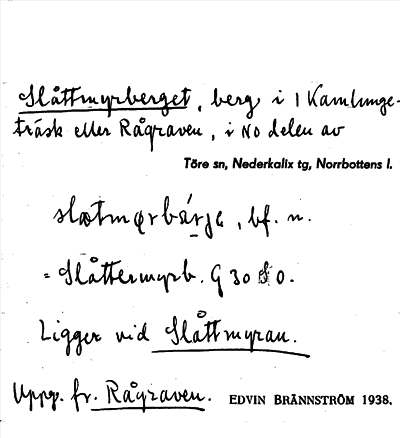 Slåttmyrberget, berg i 1 Kamlunge-
träsk eller Rågraven, i NO delen av
Töre sn, Nederkalix tg, Norrbottens l.
slætmørbárje, bf. n.
= Slåttermyrb. G 30 S O.
Ligger vid Slåttmyran.
Uppg. fr. Rågraven. EDVIN BRÄNNSTRÖM 1938.